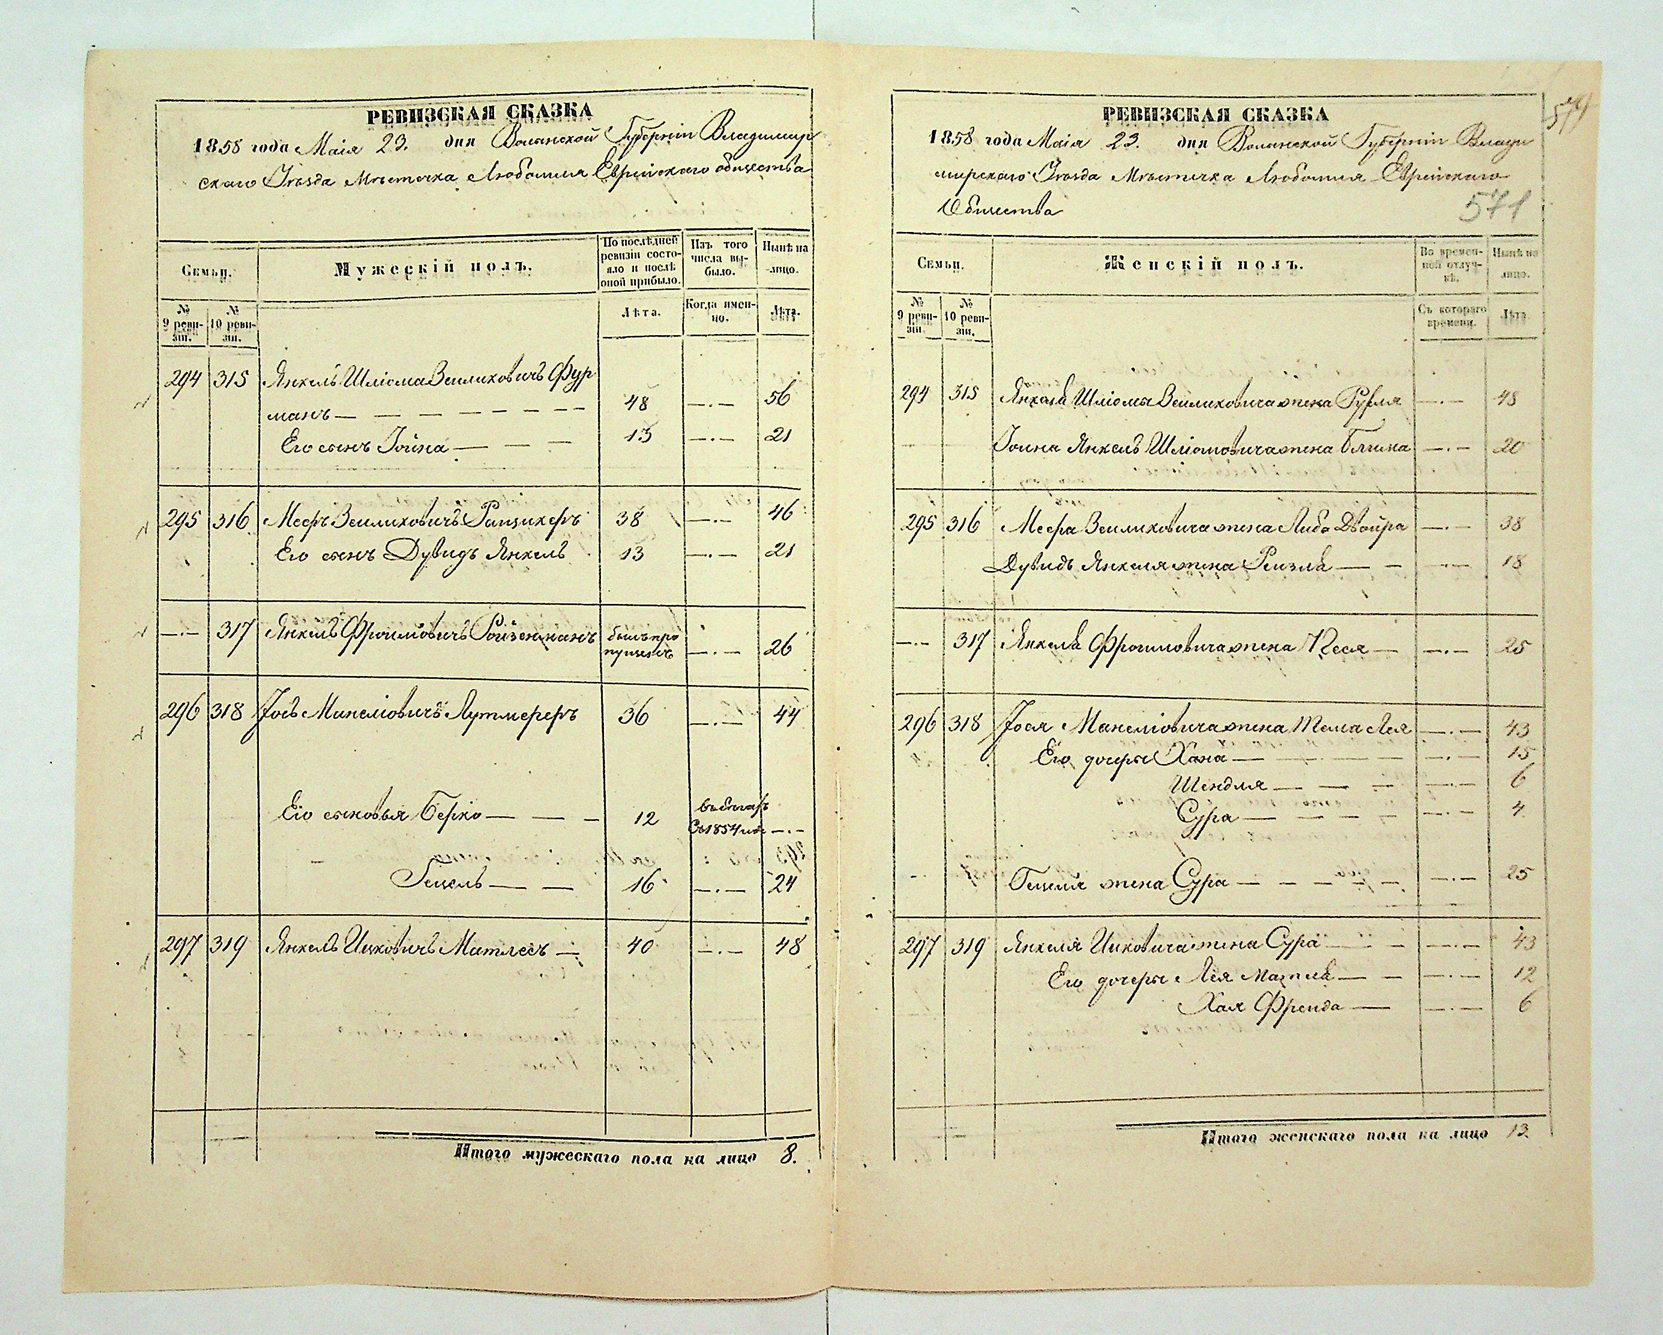 РЕВИЗСКАЯ СКАЗКА
1858 года Маія 23. дня Волынской Губерніи Владимир
скаго Уѣзда Мѣстечка Любомля Еврейскаго общества
Семьи.
Мужескій полъ.
По послѣдней ревизіи состояло и послѣ оной прибыло.
Изъ того числа выбыло.
Нынѣ на лицо.
№ 9 ревизіи.
№ 10 ревизіи.
Лѣта.
Когда именно.
Лѣта.
294 315 Янкель Шліома Зеликовичъ Фур
манъ — 48 —·— 56
Его сынъ Іойна — 13 —·— 21
295 316 Мееръ Зеликовичъ 38 —·— 46
Его сынъ Дувидъ Янкель 13 —·— 21
—·— 317 Янкель Фроимовичъ Ройзенманъ былъ про
пущенъ —·— 26
296 318 Іось Лутмереръ 36 —·— 44
Его сыновья Берко — 12 въ бѣгахъ
съ 1854 —·—
Гецель — 16 —·— 24
297 319 Янкель Ицковичъ Матлесъ — 40 —·— 48
Итого мужескаго пола на лицо 8.
579
РЕВИЗСКАЯ СКАЗКА
1858 года Маія 23. дня Волынской Губерніи Влади
мирскаго Уѣзда Мѣстечка Любомля Еврейскаго
Общества
571
Семьи.
Женскій полъ.
Во временной отлучкѣ.
Нынѣ на лицо.
№ 9 ревизіи.
№ 10 ревизіи.
Съ котораго времени.
Лѣта.
294 315 Янкеля Шліомы Зеликовича жена Рухля —·— 48
Іоина Янкель Шліомовича жена Блима —·— 20
295 316 Меера Зеликовича жена Либа Двойра —·— 38
Дувидъ Янкеля жена Рейзля — —·— 18
—·— 317 Янкеля Фроимовича жена Песя — —·— 25
296 318 Іося жена Тема Лея —·— 43
Его дочери Хана — —·— 15
Шендля — —·— 6
Сура — —·— 4
Гецеля жена Сура — —·— 25
297 319 Янкеля Ицковича жена Сура —·— 43
Его дочери Лея Матля — —·— 12
Хая Фрейда — —·— 6
Итого женскаго пола на лицо 13